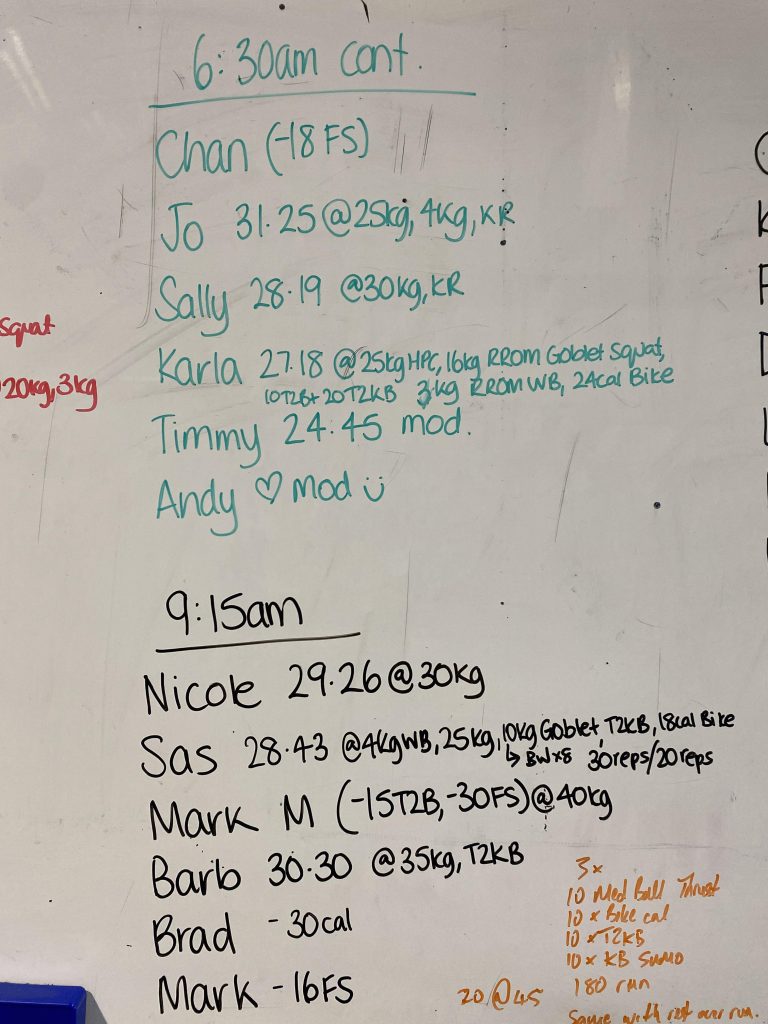 6:30am cont.
Chan (-18 FS)
Jo 31.25 @25kg, 4kg, KR
Sally 28.19 @30kg, KR
Karla 27.18 @25kg HPC, 16kg RROM Goblet Squat,
10T2B + 20T2KB 3kg RROM WB, 24cal Bike
Timmy 24.45 mod.
Andy ♡ mod ü
Squat
20kg, 3kg
9:15am
Nicole 29.26 @30kg
Sas 28.43 @4kg WB, 25kg, 10kg Goblet, T2KB, 18cal Bike
↳ BW x8 30reps/20reps
Mark M (-15T2B, -30FS) @40kg
Barb 30.30 @35kg, T2KB
Brad - 30cal
Mark - 16FS
3x
10 Med Ball Thrust
10 x Bike cal
10 x T2KB
10 x KB Sumo
180 run
20 @ 45
Same with rest over run.